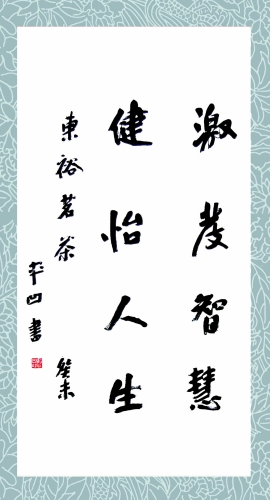 激发智慧
健怡人生
東裕茗茶 癸未
平凹書